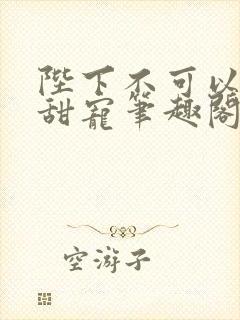 陛下不可以
甜寵筆趣閣
空游子